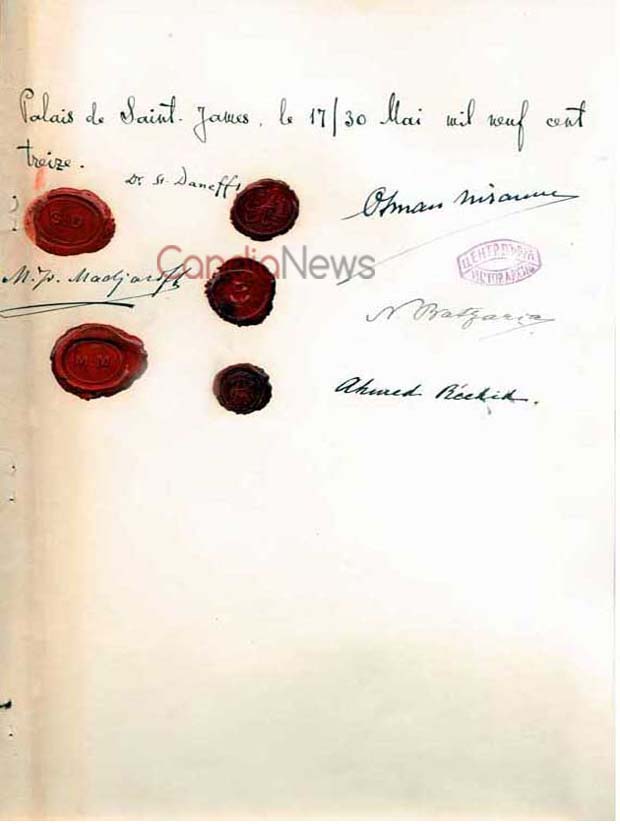 Palais de Saint-James, le 17/30 Mai mil neuf cent
treize.
Dr. St. Daneff
Osman Nizamy
CandiaNews
M. Iv. Madjaroff
ЦЕНТР. ДЪРЖ.
ИСТОР. АРХИВ
N. Batzaria
M·M
Ahmed Réchid.